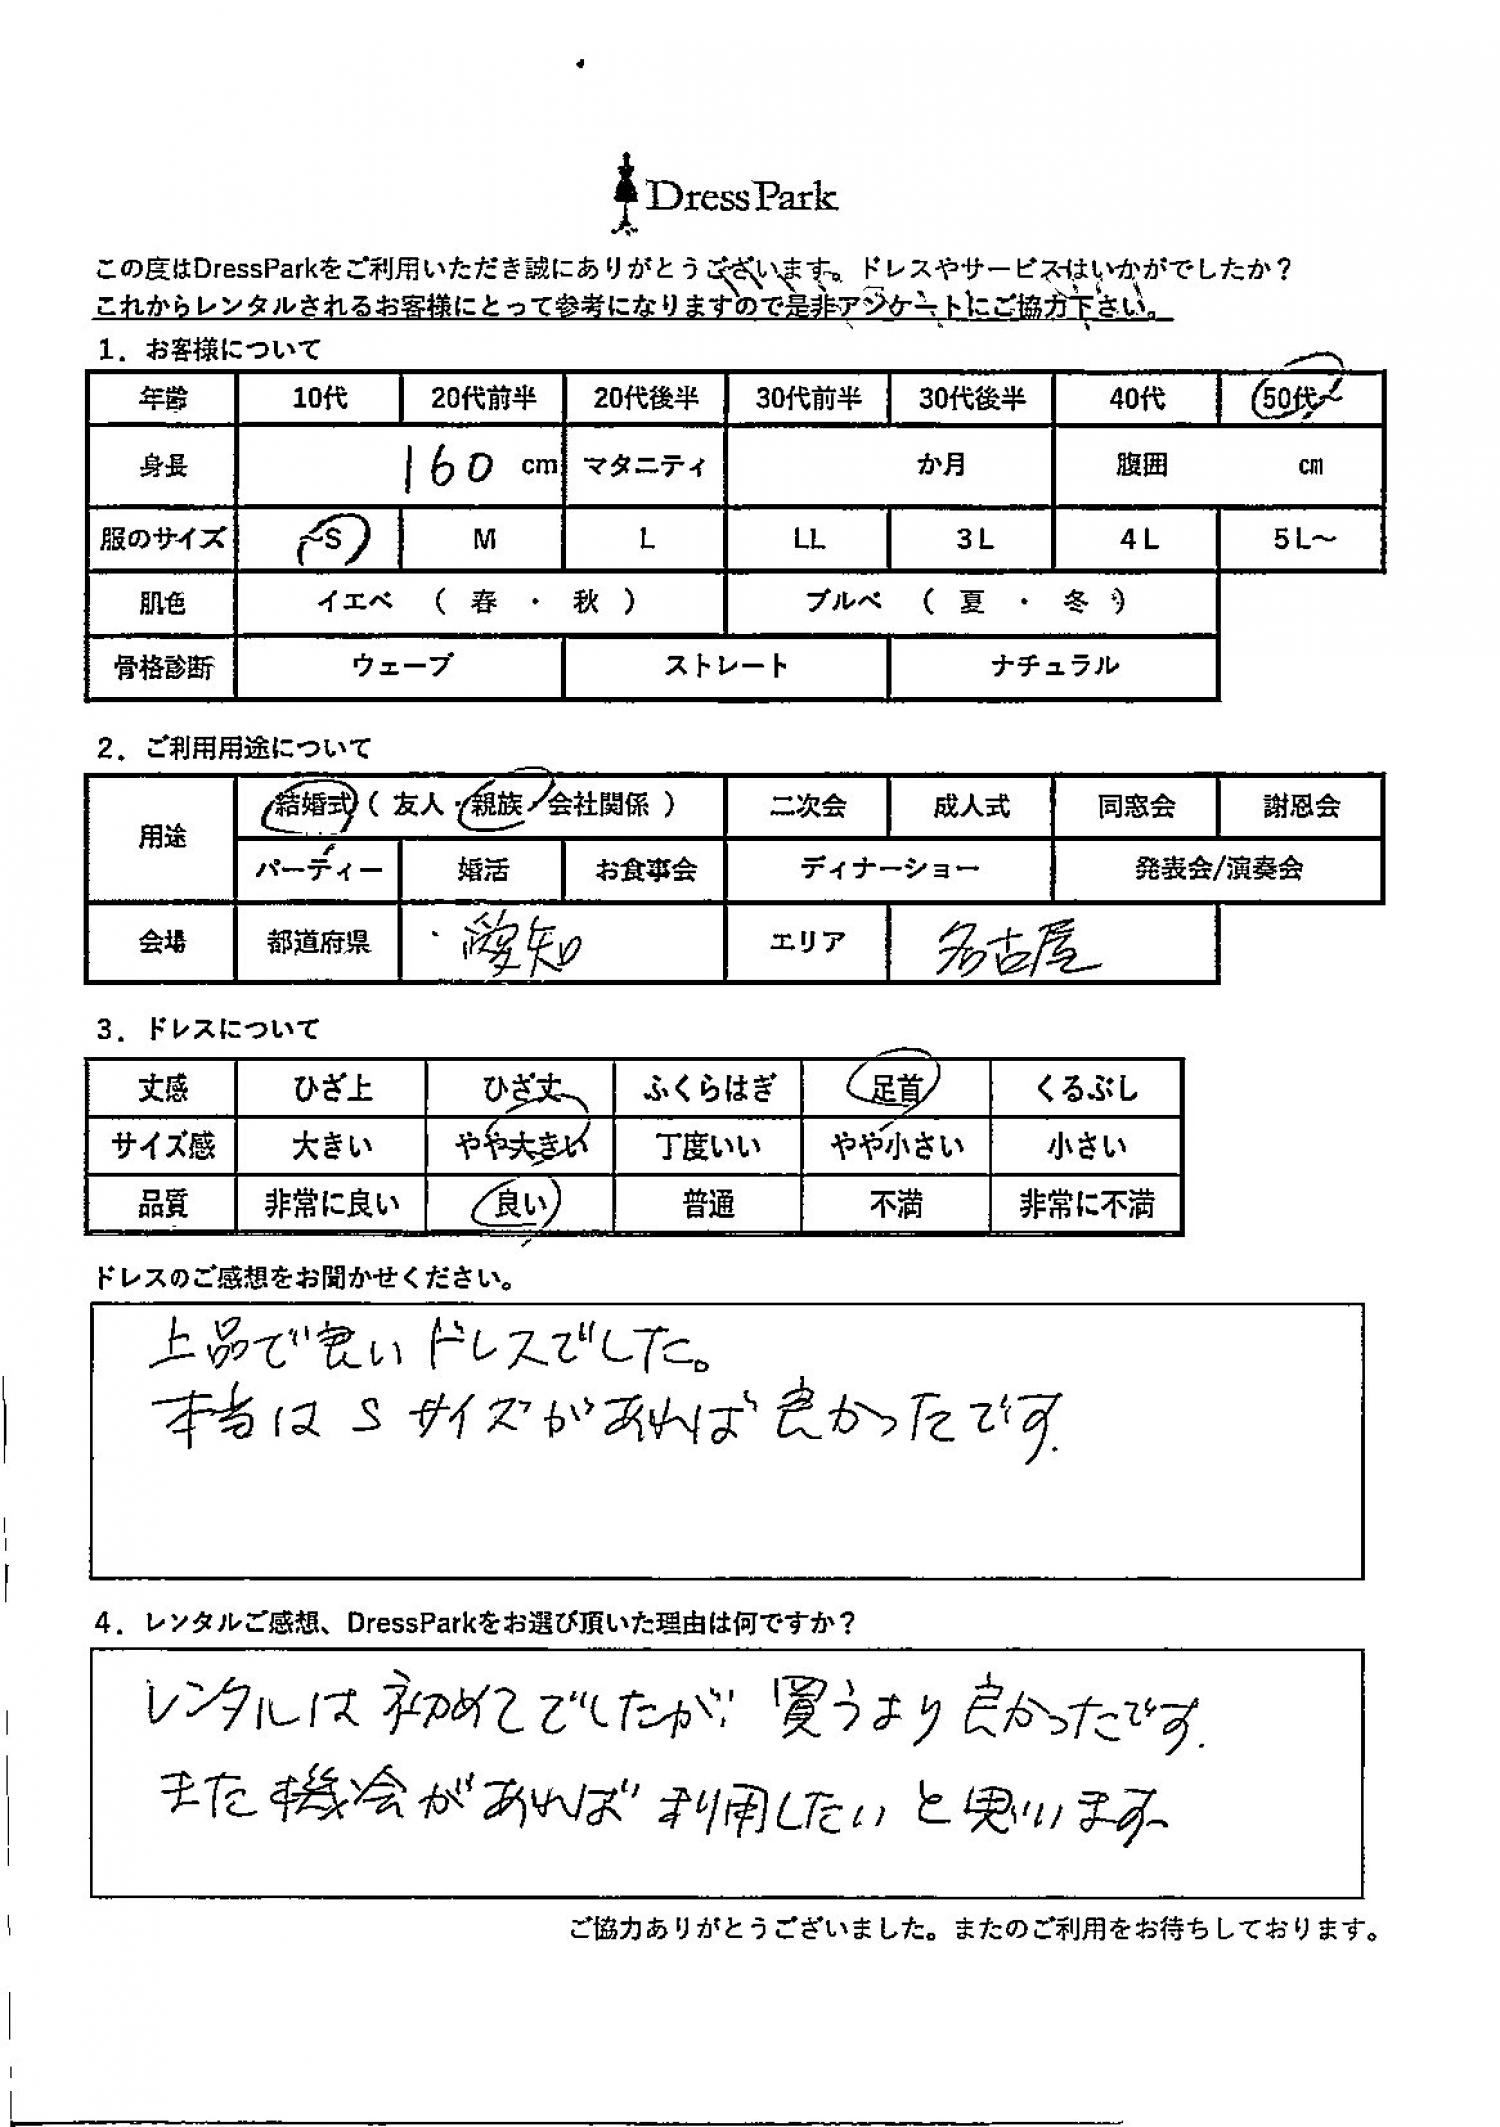 DressPark
この度はDressParkをご利用いただき誠にありがとうございます。ドレスやサービスはいかがでしたか？
これからレンタルされるお客様にとって参考になりますので是非アンケートにご協力下さい。
1．お客様について
年齢 10代 20代前半 20代後半 30代前半 30代後半 40代 50代～
身長 160 cm マタニティ か月 腹囲 cm
服のサイズ ～S M L LL 3L 4L 5L～
肌色 イエベ （ 春 ・ 秋 ） ブルベ （ 夏 ・ 冬 ）
骨格診断 ウェーブ ストレート ナチュラル
2．ご利用用途について
用途 結婚式（ 友人・親族・会社関係 ） 二次会 成人式 同窓会 謝恩会
パーティー 婚活 お食事会 ディナーショー 発表会/演奏会
会場 都道府県 愛知 エリア 名古屋
3．ドレスについて
丈感 ひざ上 ひざ丈 ふくらはぎ 足首 くるぶし
サイズ感 大きい やや大きい 丁度いい やや小さい 小さい
品質 非常に良い 良い 普通 不満 非常に不満
ドレスのご感想をお聞かせください。
上品で良いドレスでした。
本当はSサイズがあれば良かったです.
4．レンタルご感想、DressParkをお選び頂いた理由は何ですか？
レンタルは初めてでしたが 買うより良かったです.
また機会があれば利用したいと思います
ご協力ありがとうございました。またのご利用をお待ちしております。